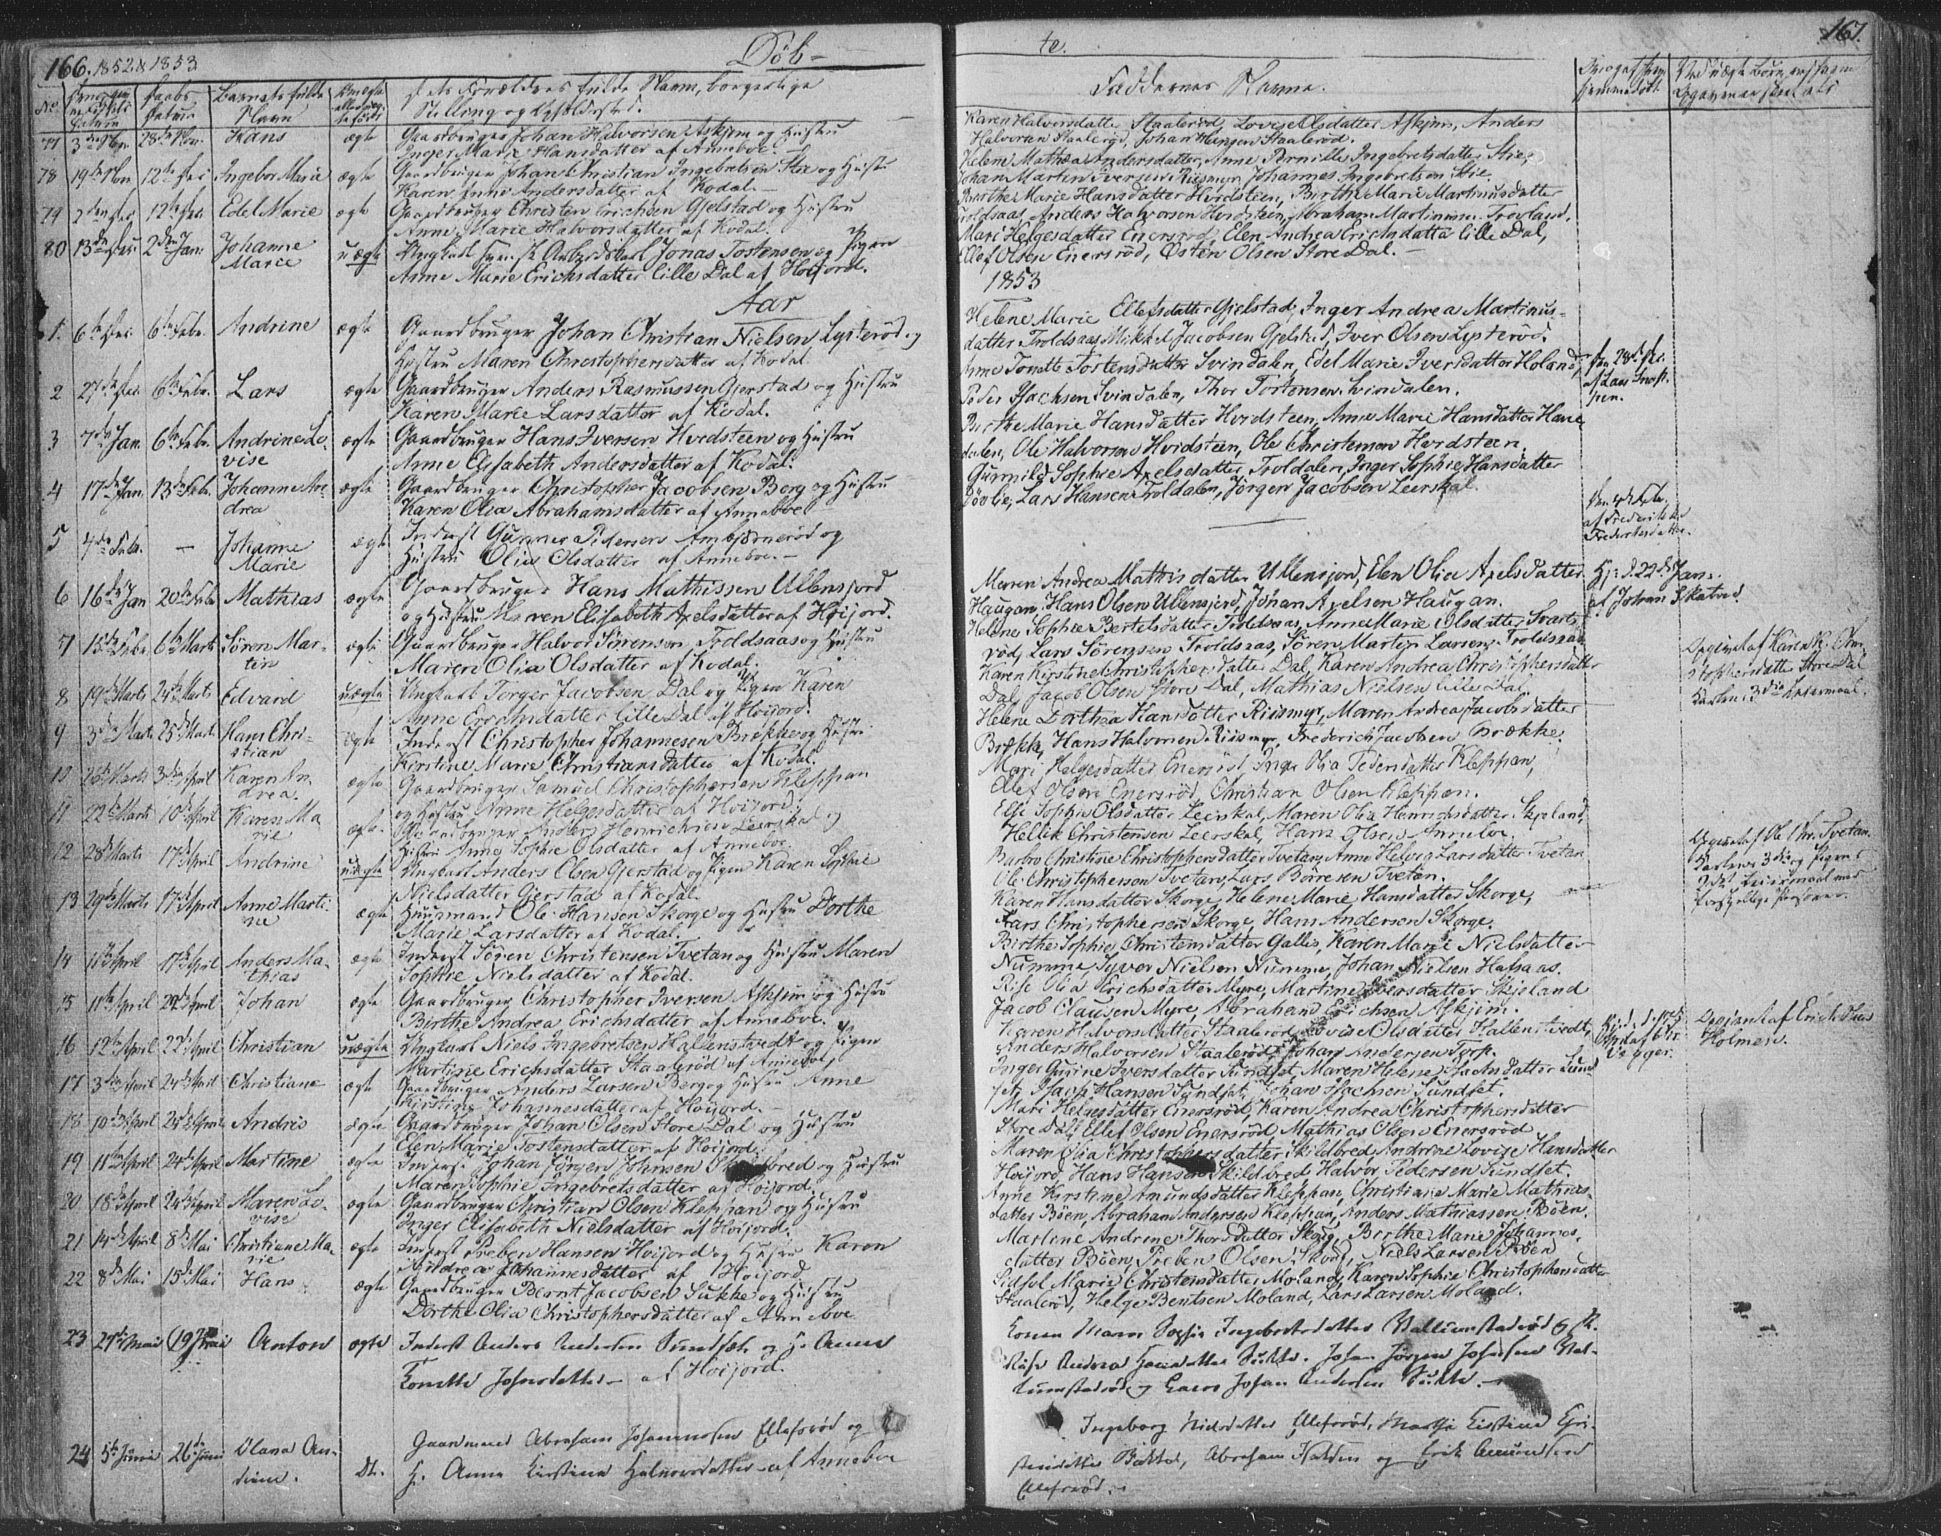 166. 1852 & 1853
Døb-
No.
Barnets fulde Navn
Forældres fulde Navn, borgerlige Stilling og
77 3 28 Nov. Hans ægte Gaardbruger Johan Halvorsen Askjem og Hustru
Inger Marie Hansdatter af Anneboe
78 19 Nov 12te Ingebor Marie ægte Gaardbruger Johan Christian Ingebretsen Stie og Hustru
Karen Anne Andersdatter af Kodal
79 2den 12te Edel Marie ægte Gaardbruger Christen Erichsen Gjelstad og Hustru
Anne Marie Halvorsdatter af Kodal.
80 13de 2den Jan. Johanne Marie uægte Ungkarl Jonas Tostensen og Pigen
Anne Marie Erichsdatter lille Dal af Hoijord.
Aar
1. 6te 6te Febr. Andrine ægte Gaardbruger Johan Christian Nielsen Lysterød og
Hustru Maren Christophersdatter af Kodal
2 27de 6te Febr. Lars ægte Gaardbruger Anders Rasmussen Gjerstad og Hustru
Karen Marie Larsdatter af Kodal.
3 7de Jan 6te Febr. Andrine Lovise ægte Gaardbruger Hans Iversen Hvidsteen og Hustru
Anne Elisabeth Andersdatter af Kodal.
4 17de Jan 13de Febr. Johanne Andrea ægte Gaardbruger Christopher Jacobsen Berg og Hustru
Karen Olea Abrahamsdatter af Anneboe
5 4de Febr. — Johanne Marie ægte Inderst Gunner Pedersen Ambjørnerød og
Hustru Olia Olsdatter af Anneboe. —
6 16de Jan 20de Febr Mathias ægte Gaardbruger Hans Mathissen Ullensjord
og Hustru Maren Elisabeth Axelsdatter af Hoijord.
7 15de Febr. 6te Marts Søren Martin ægte Gaardbruger Halvor Sørensen Troldsaas og Hustru
Maren Olia Olsdatter af Kodal.
8 19de Marts 24de Marts Edvard uægte Ungkarl Torger Jacobsen Dal og Pigen Karen
Anne Erichsdatter lille Dal af Hoijord.
9 3de Marts 25de Marts Hans Christian ægte Inderst Christopher Johannesen Brække og Hustru
Kirstine Marie Christiansdatter af Kodal.
10 26de Marts 3die April Karen Andrea ægte Gaardbruger Samuel Christophersen Kleppan
og Hustru Anne Helgesdatter af Hoijord.
11 22de Marts 10de April Karen Marie ægte Gaardbruger Anders Henrichsen Leerskal og
Hustru Anne Sophie Olsdatter af Anneboe
12 28de Marts 17de April Andrine uægte Ungkarl Anders Olsen Gjerstad og Pigen Karen Sophie
Nielsdatter Gjerstad af Kodal.
13 29de Marts 17de April Anne Martine ægte Huusmand Ole Hansen Skorge og Hustru Dorthe
Marie Larsdatter af Kodal.
14 11te April 17de April Anders Mathias ægte Inderst Søren Christensen Tvetan og Hustru Maren
Sophie Nielsdatter af Kodal.
15 11te April 22de April Johan ægte Gaardbruger Christopher Iversen Askjem og Hustru
Birthe Andrea Erichsdatter af Anneboe.
16 12te April 22de April Christian uægte Ungkarl Niels Ingebretsen Hallenstvedt og Pigen
Martine Erichsdatter Staalerød af Anneboe
17 3die April 24de April Christiane ægte Gaardbruger Anders Larsen Berg og Hustru Anne
Kirstine Johannesdatter af Hoijord.
18 10de April 24de April Andris ægte Gaardbruger Johan Olsen Store Dal og Hustru
Elen Marie Tostensdatter af Hoijord.
19 11te April 24de April Martine ægte Inderst Johan Jørgen Johnsen og Hustru
Maren Sophie Ingebretsdatter af Hoijord.
20 18de April 24de April Maren Lovise ægte Gaardbruger Christian Olsen Kleppan og Hustru
Inger Elisabeth Nielsdatter af Hoijord.
21 14de April 8de Mai Christiane Marie ægte Inderst Preben Hansen Hoijord og Hustru Karen
Andrea Johannesdatter af Hoijord
22 8de Mai 15de Mai Hans ægte Gaardbruger Bernt Jacobsen Sukke og Hustru
Dorthe Olia Christophersdatter af Anneboe
23 Anton ægte Inderst Anders Andersen Sundset og H. Anne
af Hoijord
24 5te Juni 26de Juni Olana Andrine. Dt. Gaardmand Abraham Johannesen Ellefsrød og
H. Anne Kirstine Halvorsdatter af Anneboe
167.
te.
Faddernes Navne.
Karen Halvorsdatter Staalerød, Lovise Olsdatter Askjem, Anders
Halvorsen Staalerød, Johan Hansen Staalerød.
Helene Mathea Andersdatter, Anne Pernille Ingebretsdatter Stie,
Johan Martin Iversen Riismyr, Johannes Ingebretsen Stie.
Birthe Marie Hansdatter Hvidsteen, Birthe Marie Martinusdatter
Troldsaas, Anders Halvorsen Hvidsteen, Abraham Martinussen Trovland.
Mari Helgesdatter Enersrød, Elen Andrea Erichsdatter lille Dal,
Ellef Olsen Enersrød, Østen Olsen Store Dal. —
1853
Helene Marie Ellefsdatter Gjelstad, Inger Andrea Martinus-
datter Troldsaas, Mikkel Jacobsen Gjelstad, Iver Olsen Lysterød.
Anne Tonette Tostensdatter Svindalen, Edel Marie Iversdatter Holand,
Peder Isachsen Svindalen, Thor Tortensen Svindalen.
Birthe Marie Hansdatter Hvidsteen, Anne Marie Hansdatter Have-
dalen, Ole Halvorsen Hvidsteen, Ole Christensen Hvidsteen.
Gunnild Sophie Axelsdatter Troldalen, Inger Sophie Hansdatter
Lars Hansen Troldalen, Jørgen Jacobsen Leerskal.
Maren Andrea Mathisdatter Ullensjord, Elen Olia Axelsdatter
Haugan, Hans Olsen Ullensjord, Johan Axelsen Haugan.
Helene Sophie Bertelsdatter Troldsaas, Anne Marie Olsdatter Svarte-
rød, Lars Sørensen Troldsaas, Søren Martin Larsen Troldsaas
Karen Kirstine Christophersdatter Dal, Karen Andrea Christophersdatter
Dal, Jacob Olsen Store Dal, Mathias Nielsen lille Dal.
Helene Dorthea Hansdatter Riismyr, Maren Andrea Jacobsdatter
Brække, Hans Halvorsen Riismyr, Frederich Jacobsen Brække.
Mari Helgesdatter Enersrød, Inger Olia Pedersdatter Kleppan,
Ellef Olsen Enersrød, Christian Olsen Kleppan.
Else Sophie Olsdatter Leerskal, Maren Olia Henrichsdatter Skjeland,
Hellik Christensen Leerskal, Hans Olsen Anneboe.
Barbro Christine Christophersdatter Tvetan, Anne Helvig Larsdatter Tvetan
Ole Christophersen Tvetan, Lars Børresen Tvetan.
Karen Hansdatter Skorge, Helene Marie Hansdatter Skorge,
Lars Christophersen Skorge, Hans Andersen Skorge.
Birthe Sophie Christensdatter Gallis, Karen Marie Nielsdatter
Numme, Syver Nielsen Numme, Johan Nielsen Hafsaas.
Rise Olia Erichsdatter Myre, Martine Iversdatter Skjeland
Jacob Clausen Myre, Abraham Erichsen Askjem.
Karen Halvorsdatter Staalerød, Lovise Olsdatter Hallenstvedt,
Anders Halvorsen Staalerød, Johan Andersen Torp.
Inger Gurine Iversdatter Sundset, Maren Helene Isachsdatter Sund-
set, Isach Hansen Sundset, Johan Isachsen Sundset.
Mari Helgesdatter Enersrød, Karen Andrea Christophersdatter
Store Dal, Ellef Olsen Enersrød, Mathias Olsen Enersrød
Maren Olia Christophersdatter Skildbred, Andrine Lovise Hansdatter
Hoijord, Hans Hansen Skildbred, Halvor Pedersen Sundset.
Anne Kirstine Amundsdatter Kleppan, Christiane Marie Mathias-
datter Bøen, Abraham Andersen Kleppan, Anders Mathiassen Bøen.
Martine Andrine Thorsdatter Skoug, Birthe Marie Johannes-
datter Bøen, Preben Olsen Skoug, Niels Larsen Bøen
Sidsel Marie Christensdatter Moland, Karen Sophie Christophersdatter
Staalerød, Helge Bentsen Moland, Lars Larsen Moland.
Konen Maren Sophie Ingebretsdatter
Andrea Hansdatter Sukke, Johan Jørgen Johnsen
og Johan Andersen Sukke. —
Ingeborg Nielsdatter Ellefsrød, Marthe Kirstine
Abraham Halden og Erik Amundsen
Ellefsrød. —
Den 28de
af Lars
af Frederikke
Frederiksdatter
Hj: d. 22de Jan.
af Johan Skatvod
Opgivet af Karen N. Chri-
stophersdatter Store Dal
Opgivet af Ole Chr. Tvetan.
Opgivet af Erich Olsen
Holmen.